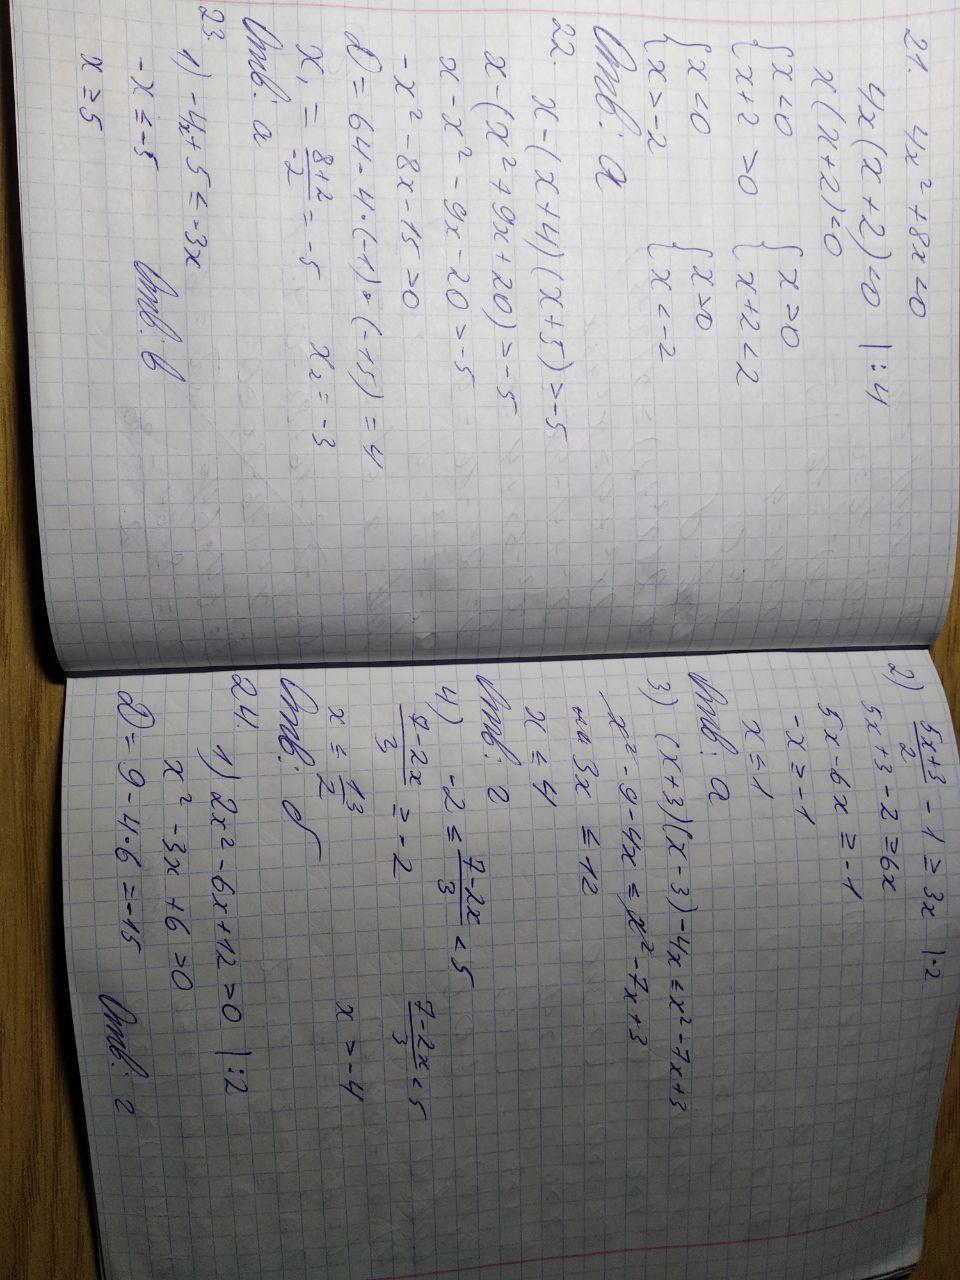 21. 4x² + 8x < 0
4x(x + 2) < 0 | : 4
x(x + 2) < 0
{ x < 0 { x > 0
{ x + 2 > 0 { x + 2 < 2
{ x < 0 { x > 0
{ x > -2 { x < -2
Отв: а
22. x - (x + 4)(x + 5) > -5
x - (x² + 9x + 20) > -5
x - x² - 9x - 20 > -5
-x² - 8x - 15 > 0
D = 64 - 4 · (-1) · (-15) = 4
x₁ = (8+2)/(-2) = -5 x₂ = -3
Отв: а
23. 1) -4x + 5 ≤ -3x
-x ≤ -5
x ≥ 5
Отв: в
2) (5x+3)/2 - 1 ≥ 3x | · 2
5x + 3 - 2 ≥ 6x
5x - 6x ≥ -1
-x ≥ -1
x ≤ 1
Отв: а
3) (x + 3)(x - 3) - 4x ≤ x² - 7x + 3
x² - 9 - 4x ≤ x² - 7x + 3
3x ≤ 12
x ≤ 4
Отв: г
4) -2 ≤ (7-2x)/3 < 5
(7-2x)/3 ≥ -2 (7-2x)/3 < 5
x ≤ 13/2 x > -4
Отв: б
24. 1) 2x² - 6x + 12 > 0 | : 2
x² - 3x + 6 > 0
D = 9 - 4·6 = -15
Отв: г